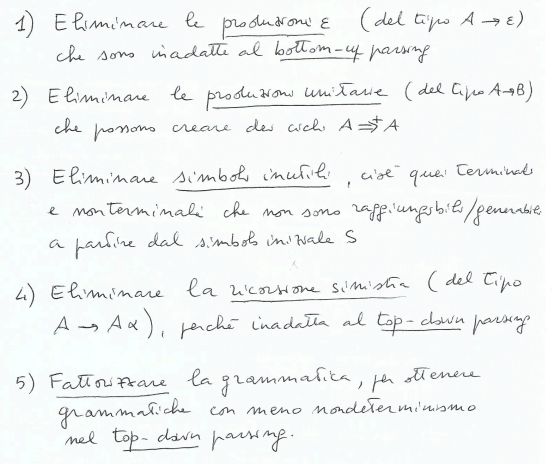 1) Eliminare le produzioni ε (del tipo A → ε)
che sono inadatte al bottom-up parsing
2) Eliminare le produzioni unitarie (del tipo A→B)
che possono creare dei cicli A ⇒⁺ A
3) Eliminare simboli inutili, cioè quei terminali
e nonterminali che non sono raggiungibili/generabili
a partire dal simbolo iniziale S
4) Eliminare la ricorsione sinistra (del tipo
A → Aα), perché inadatta al top-down parsing
5) Fattorizzare la grammatica, per ottenere
grammatiche con meno nondeterminismo
nel top-down parsing.